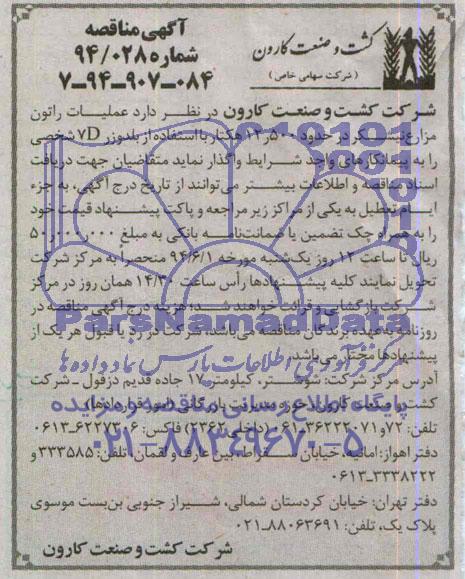 آگهی مناقصه
شماره ۹۴/۰۲۸
۷-۹۴-۹۰۷-۰۸۴
کشت و صنعت کارون
(شرکت سهامی خاص)
شرکت کشت و صنعت کارون در نظر دارد عملیات راتون
مزارع نیشکر در حدود ۱۲٫۵۰۰ هکتار با استفاده از بلدوزر D۷ شخصی
را به پیمانکارهای واجد شرایط واگذار نماید متقاضیان جهت دریافت
اسناد مناقصه و اطلاعات بیشتر می‌توانند از تاریخ درج آگهی، به جزء
ایام تعطیل به یکی از مراکز زیر مراجعه و پاکت پیشنهاد قیمت خود
را به همراه چک تضمین یا ضمانت‌نامه بانکی به مبلغ ۵۰٫۰۰۰٫۰۰۰
ریال تا ساعت ۱۲ روز یک‌شنبه مورخه ۹۴/۶/۱ منحصراً به مرکز شرکت
تحویل نمایند کلیه پیشنهادها رأس ساعت ۱۴/۳۰ همان روز در مرکز
شرکت بازگشایی و قرائت خواهند شد؛ هزینه درج آگهی مناقصه در
روزنامه به عهده برندگان مناقصه می‌باشد. شرکت در رد یا قبول هر یک از
پیشنهادها مختار می‌باشد.
آدرس مرکز شرکت: شوشتر، کیلومتر ۱۷ جاده قدیم دزفول ـ شرکت
کشت و صنعت کارون، حوزه مدیریت بازرگانی (امور قراردادها)
تلفن: ۷۲ و ۳۶۲۲۲۰۷۱-۰۶۱ (داخلی ۲۳۶۲) فاکس: ۶۲۲۷۳۰۶-۰۶۱۳
دفتر اهواز: امانیه، خیابان سقراط، بین عارف و لقمان، تلفن: ۳۳۳۵۸۵ و
۳۳۳۸۲۲۲-۰۶۱۳
دفتر تهران: خیابان کردستان شمالی، شیراز جنوبی بن‌بست موسوی
پلاک یک، تلفن: ۸۸۰۶۳۶۹۱-۰۲۱
شرکت کشت و صنعت کارون
ParsNamadData
مرکز فرآوری اطلاعات پارس نماد داده ها
پایگاه اطلاع رسانی مناقصه و مزایده
۰۲۱-۸۸۳۴۹۶۷۰-۵